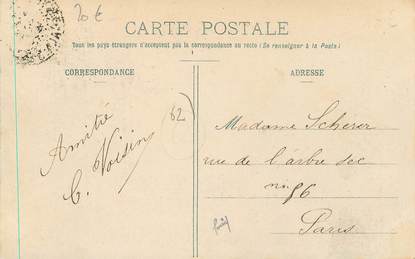 20 €
CARTE POSTALE
Tous les pays étrangers n'acceptent pas la correspondance au recto (Se renseigner à la Poste)
CORRESPONDANCE
ADRESSE
Amitié
C. Voisin
62
Madame Scherer
rue de l'arbre sec
no 56
Paris